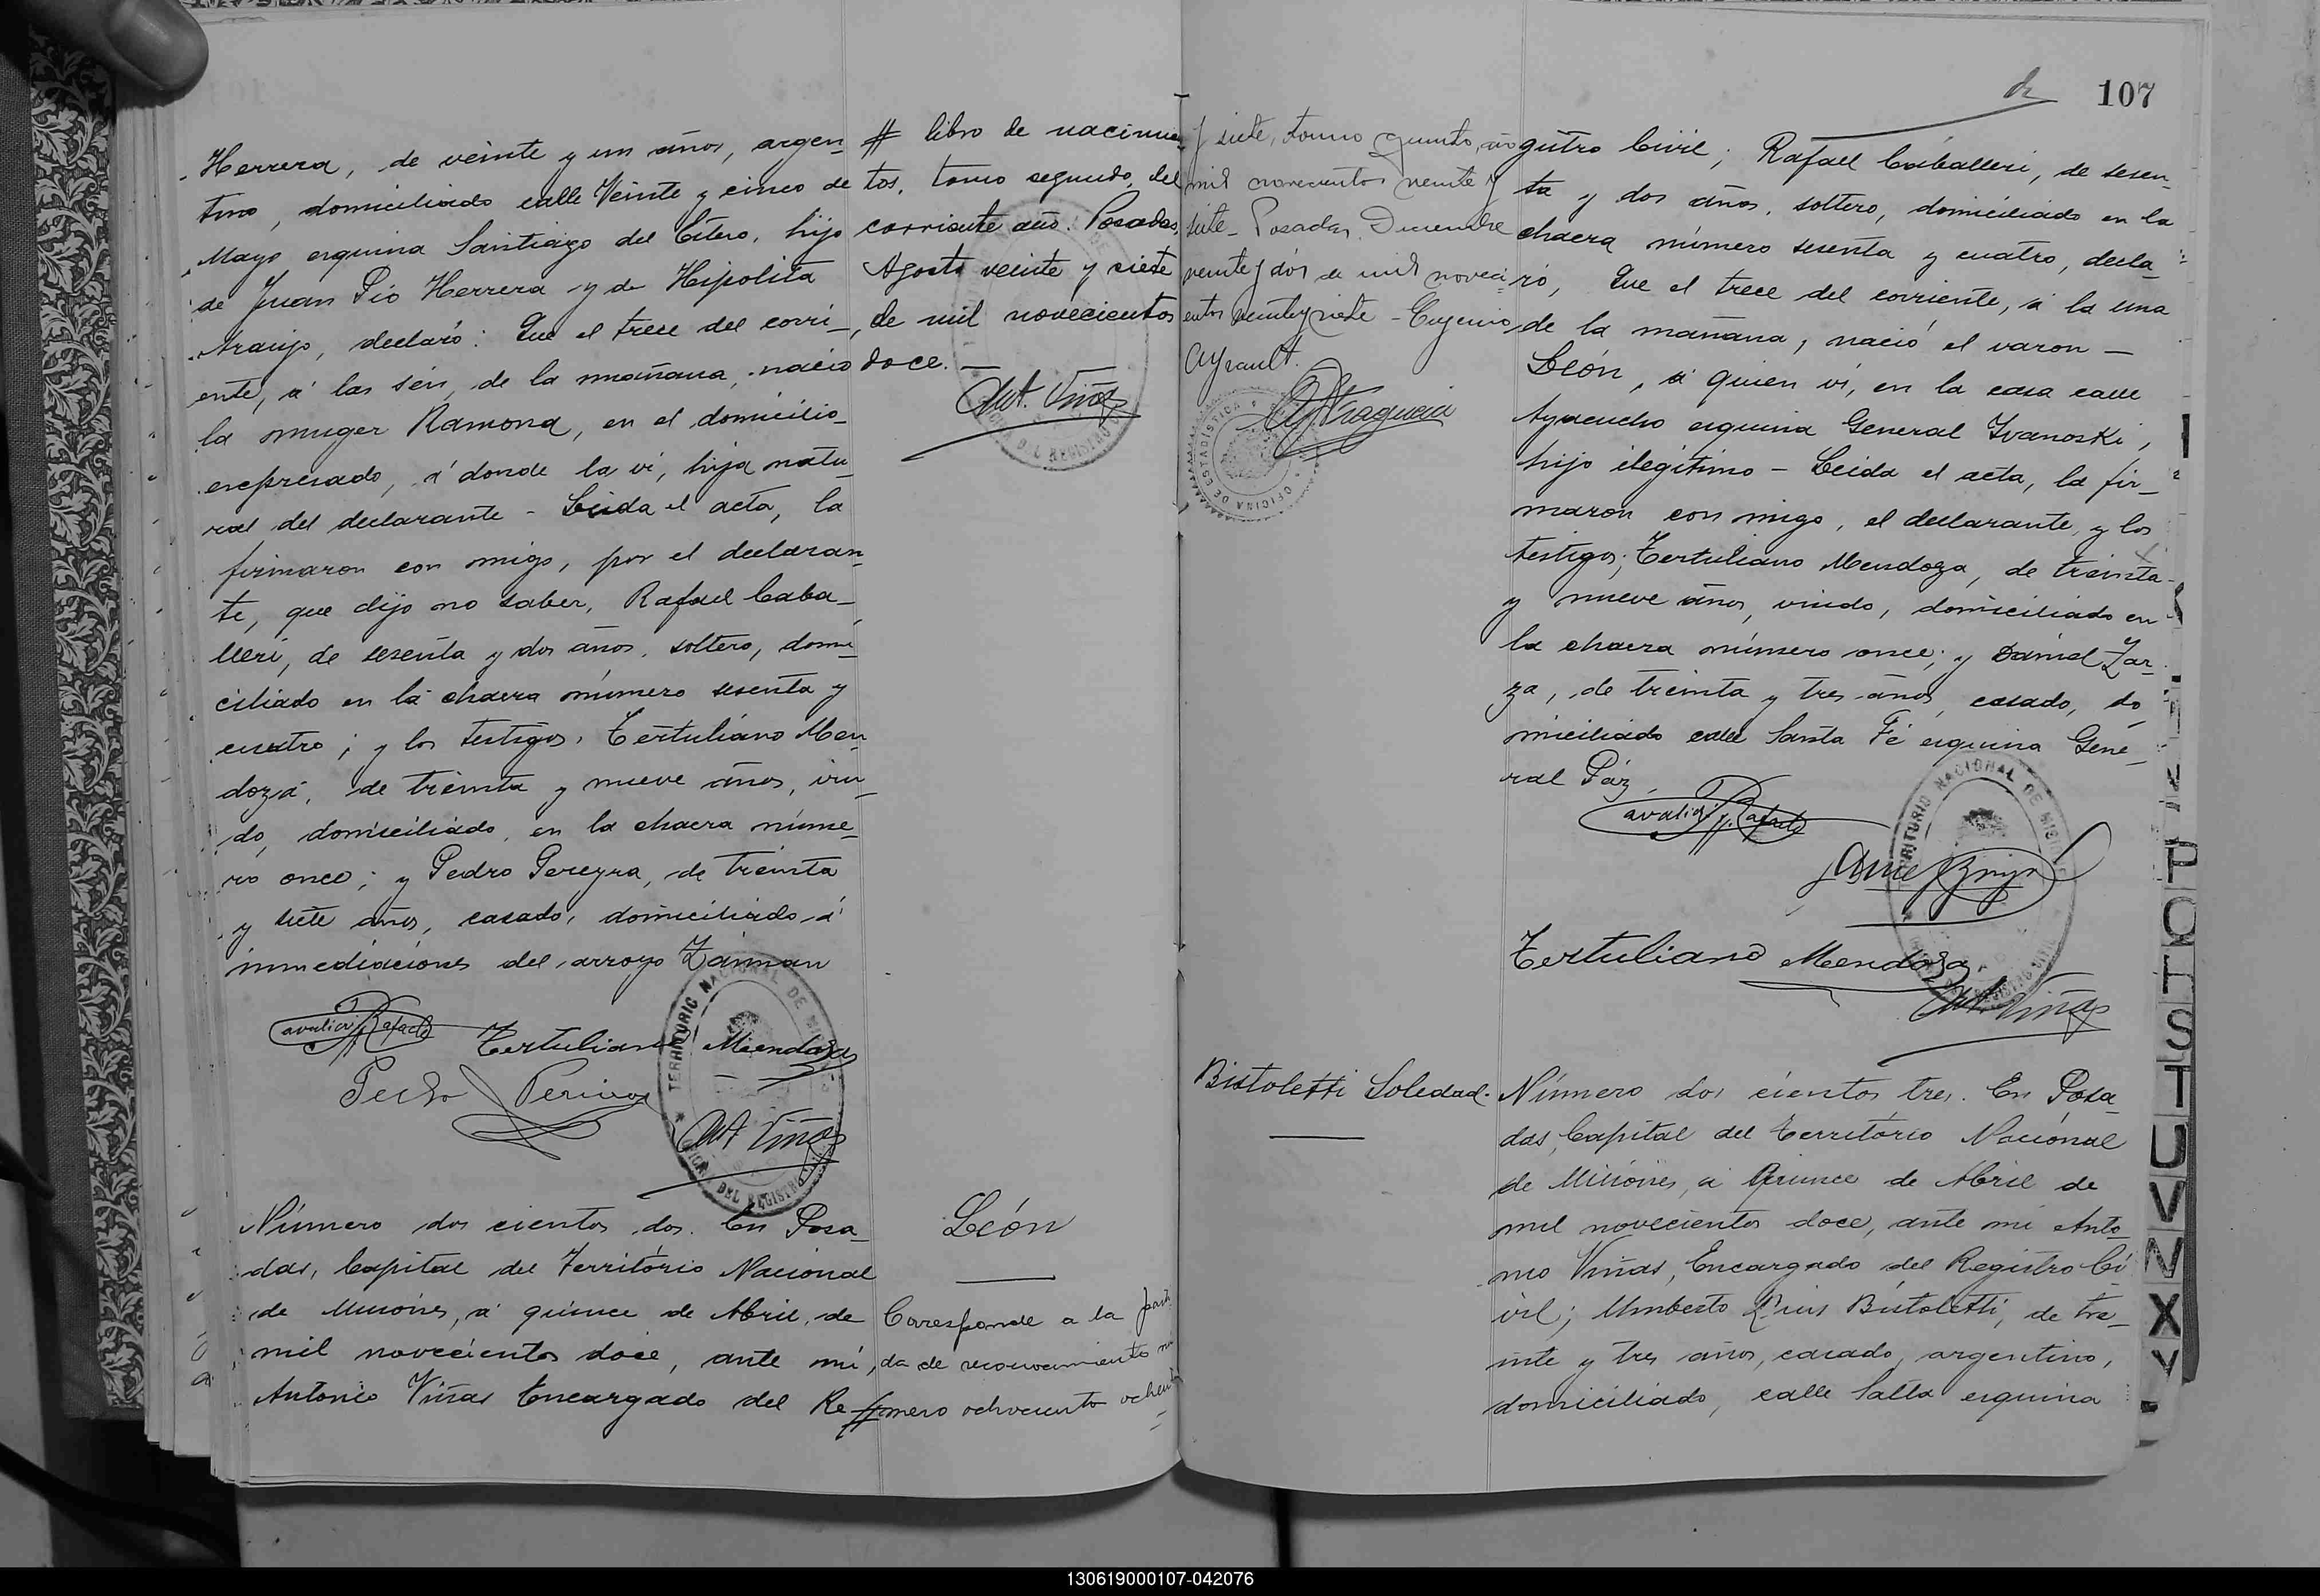 Herrera, de veinte y un años, argen-
tino, domiciliado calle Veinte y cinco de
Mayo esquina Santiago del Estero, hijo
de Juan Pio Herrera y de Hipolita
Araujo, declaró: Que el trece del corri-
ente, á las seis, de la mañana, nació
la muger Ramona, en el domicilio
expresado, á donde la ví, hija natu-
ral del declarante - Leida el acta, la
firmaron con migo, por el declaran-
te, que dijo no saber, Rafael Caba-
lleri, de sesenta y dos años, soltero, domi-
ciliado en la chacra número sesenta y
cuatro; y los testigos, Tertuliano Men-
doza, de treinta y nueve años, viu-
do, domiciliado, en la chacra núme-
ro once; y Pedro Pereyra, de treinta
y siete años, casado, domiciliado á
inmediaciones del arroyo Zaiman
Tertuliano Mendoza
Pedro
Ant. Viñas
TERRITORIO NACIONAL DE MISIONES
DEL REGISTRO
Número dos cientos dos. En Posa-
das, Capital del Territorio Nacional
de Misiones, á quince de Abril, de
mil novecientos doce, ante mí,
Antonio Viñas Encargado del Re-
# libro de nacimien-
tos, tomo segundo, del
corriente año. Posadas,
Agosto veinte y siete
de mil novecientos
doce. —
Ant. Viñas
DEL REGISTRO
León
Corresponde a la parti
da de reconocimiento nu
mero ochociento ochent
y siete, tomo quinto, año
mil novecientos veinte y
siete - Posadas, Diciembre
veinte y dos de mil noveci-
entos veinte y siete - Eugenio
Ayrault.
OFICINA DE ESTADISTICA
107
gistro Civil; Rafael Caballeri, de sesen-
ta y dos años, soltero, domiciliado en la
chacra número sesenta y cuatro, decla-
ró, Que el trece del corriente, á la una
de la mañana, nació el varon —
León, á quien ví, en la casa calle
Ayacucho esquina General Ivanoski,
hijo ilegítimo - Leida el acta, la fir-
maron con migo, el declarante, y los
testigos; Tertuliano Mendoza, de treinta
y nueve años, viudo, domiciliado en
la chacra número once; y Daniel Zar-
za, de treinta y tres años, casado, do
miciliado calle Santa Fé esquina Gene-
ral Páz
TERRITORIO NACIONAL DE MISIONES
Tertuliano Mendoza
Ant. Viñas
Bistoletti Soledad.
Número dos cientos tres. En Posa-
das, Capital del Territorio Nacional
de Misiones, á quince de Abril de
mil novecientos doce, ante mi Anto-
nio Viñas, Encargado del Registro Ci
vil; Umberto Luis Bistoletti, de tre-
inte y tres años, casado, argentino,
domiciliado, calle Salta esquina
P
Q
R
S
T
U
V
X
Y
130619000107-042076